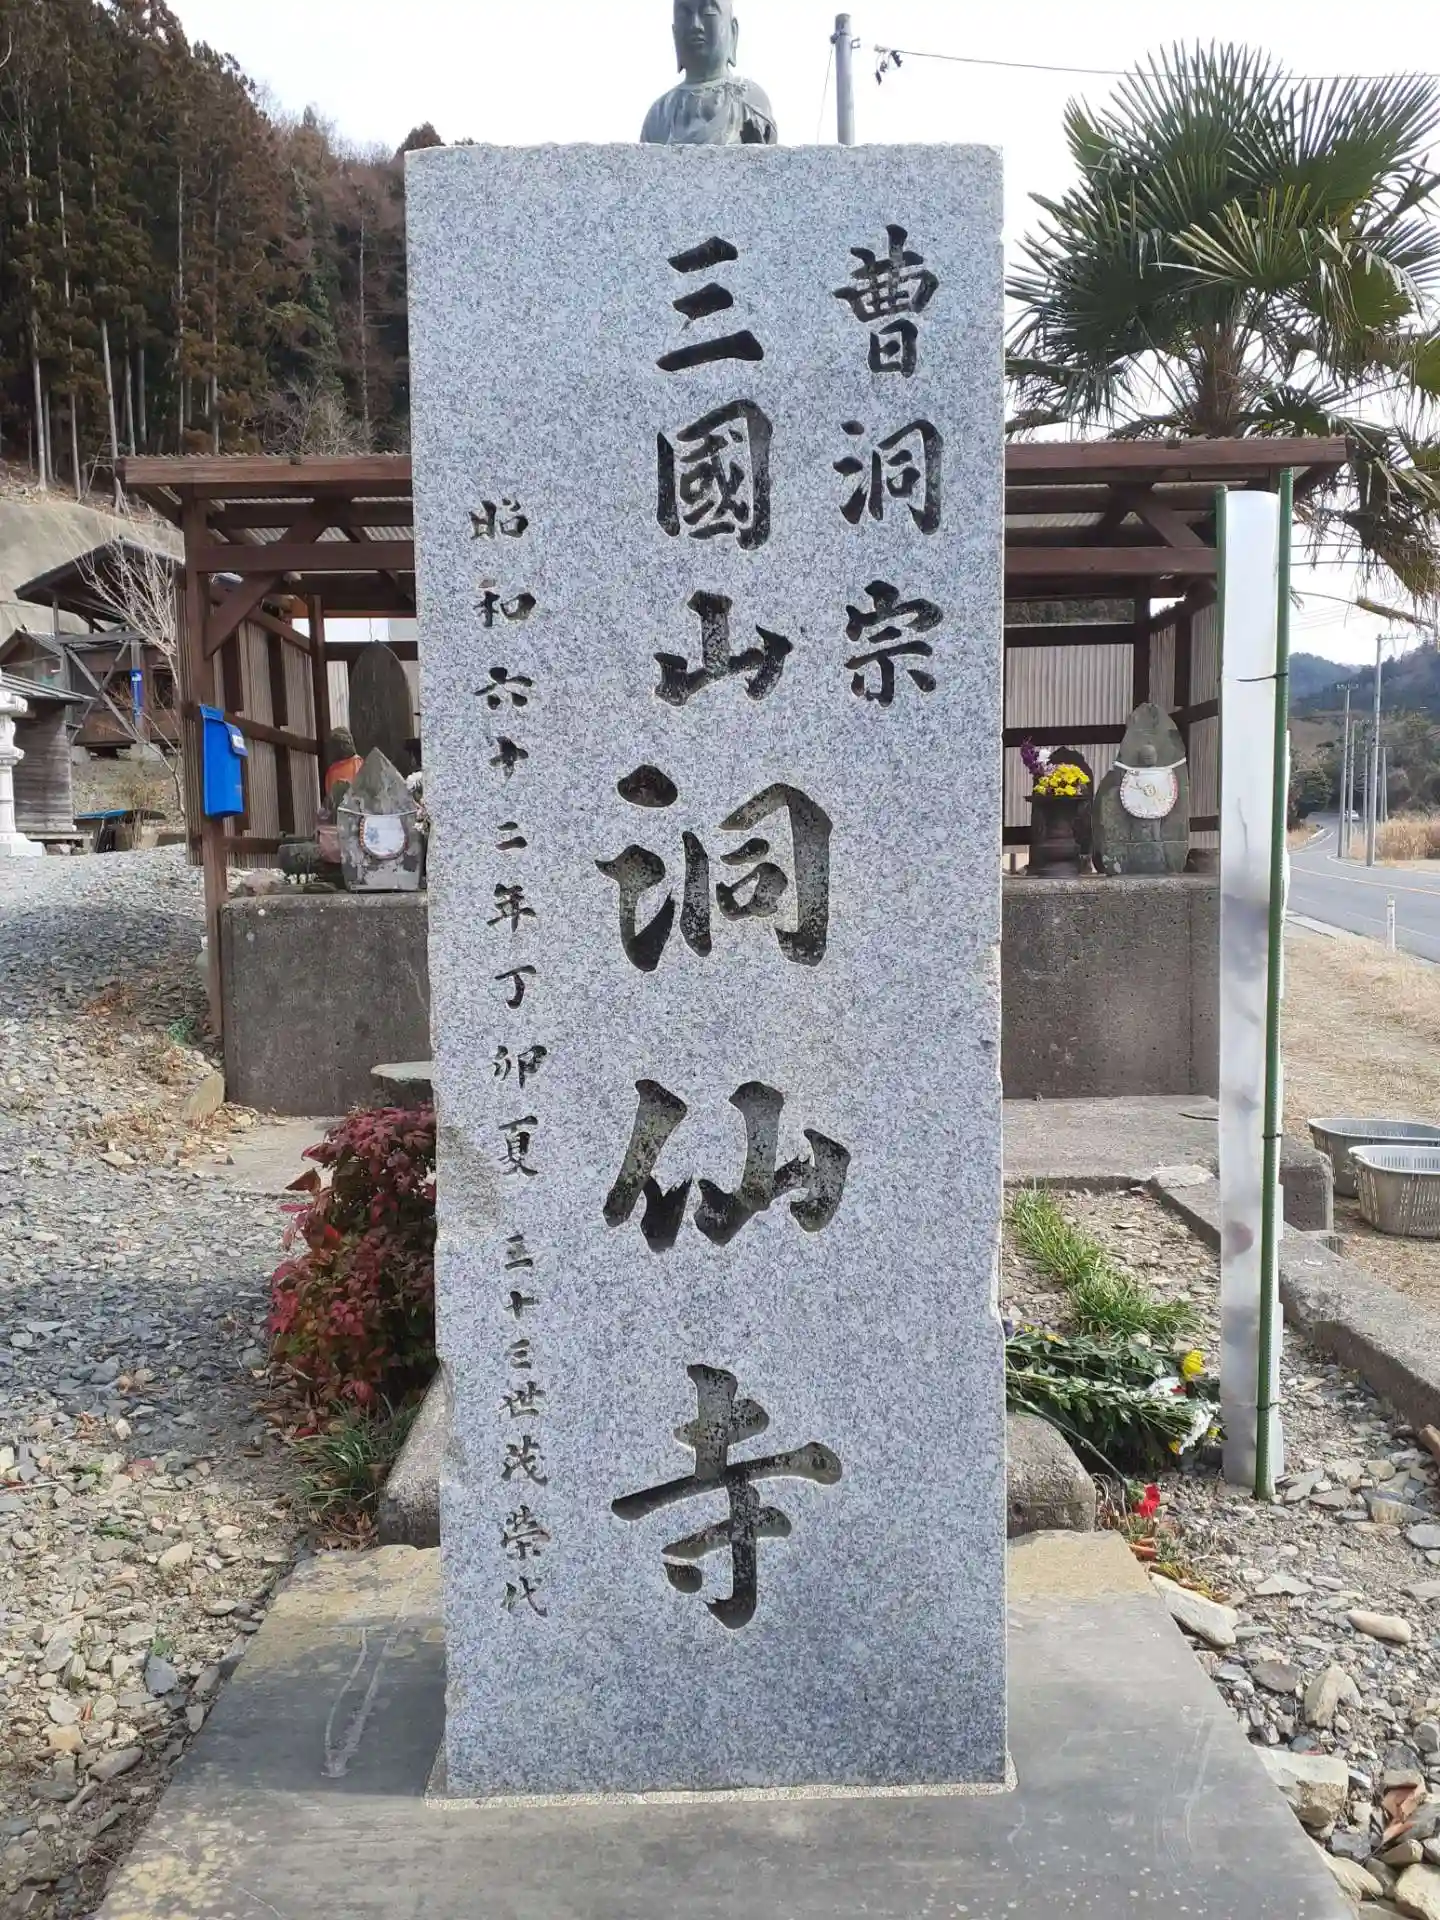 曹洞宗
三國山洞仙寺
昭和六十二年丁卯夏 三十三世茂榮代